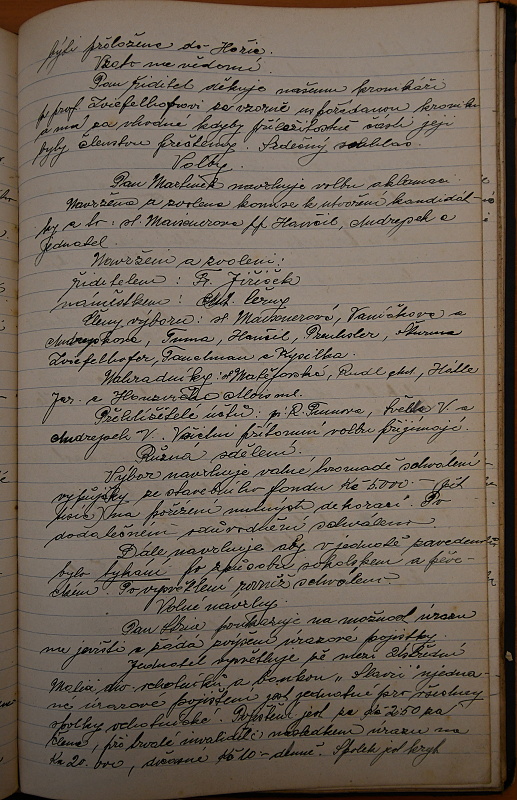 býti přiložena do Hořic.
Vzato na vědomí.
Pan ředitel děkuje našemu kronikáři
p. prof. Zwiefelhofrovi za vzorně uspořádanou kroniku
a má za vhodné kdyby příležitostně části její
byly členstvu přečteny. Srdečný souhlas.
Volby.
Pan Martinek navrhuje volbu aklamací
Navržena a zvolena komise k utvoření kandidát-
ky a to: sl. Maisnerova pp Hančil, Andrejsek a
jednatel.
Navrženi a zvoleni:
ředitelem: Fr. Jiřiček
náměstkem: Ant. Černý
Členy výboru: sl Maisnerová, Vaníčkova a
Andrejskova, Tuma, Hančil, Prechsler,
Zwiefelhofer, Tanelman a Kysilka.
Náhradníky: sl Matějovská, Rudl, Hálle
Jar. a
Přehlížitele účtů: pí R. Tumova, Světla V. a
Andrejsek V. Všichni přítomní volbu přijímají.
Různá sdělení.
Výbor navrhuje valné hromadě schválení
výpůjčky ze stavebního fondu Kč 5.000.- (pět
tisíc) na pořízení nutných dekorací. Po
dodatečném odůvodnění schváleno.
Dále navrhuje aby v jednotě zavedeno
bylo tykání po způsobu sokolském a pěve-
ckém. Po vysvětlení rovněž schváleno.
Volné návrhy.
Pan poukazuje na možnost úrazu
na jevišti a žádá zvýšení úrazové pojistky.
Jednatel vysvětluje že mezi Ústřední
Matici div. ochotníků a bankou „Slavií" ujedna-
né úrazové pojištění jest jednotné pro všechny
spolky ochotnické. Pojištění jest za Kč 2.50 za
člena, při trvalé invaliditě následkem úrazu na
Kč 20.000, dočasné Kč 10.- denně. Spolek jest kryt